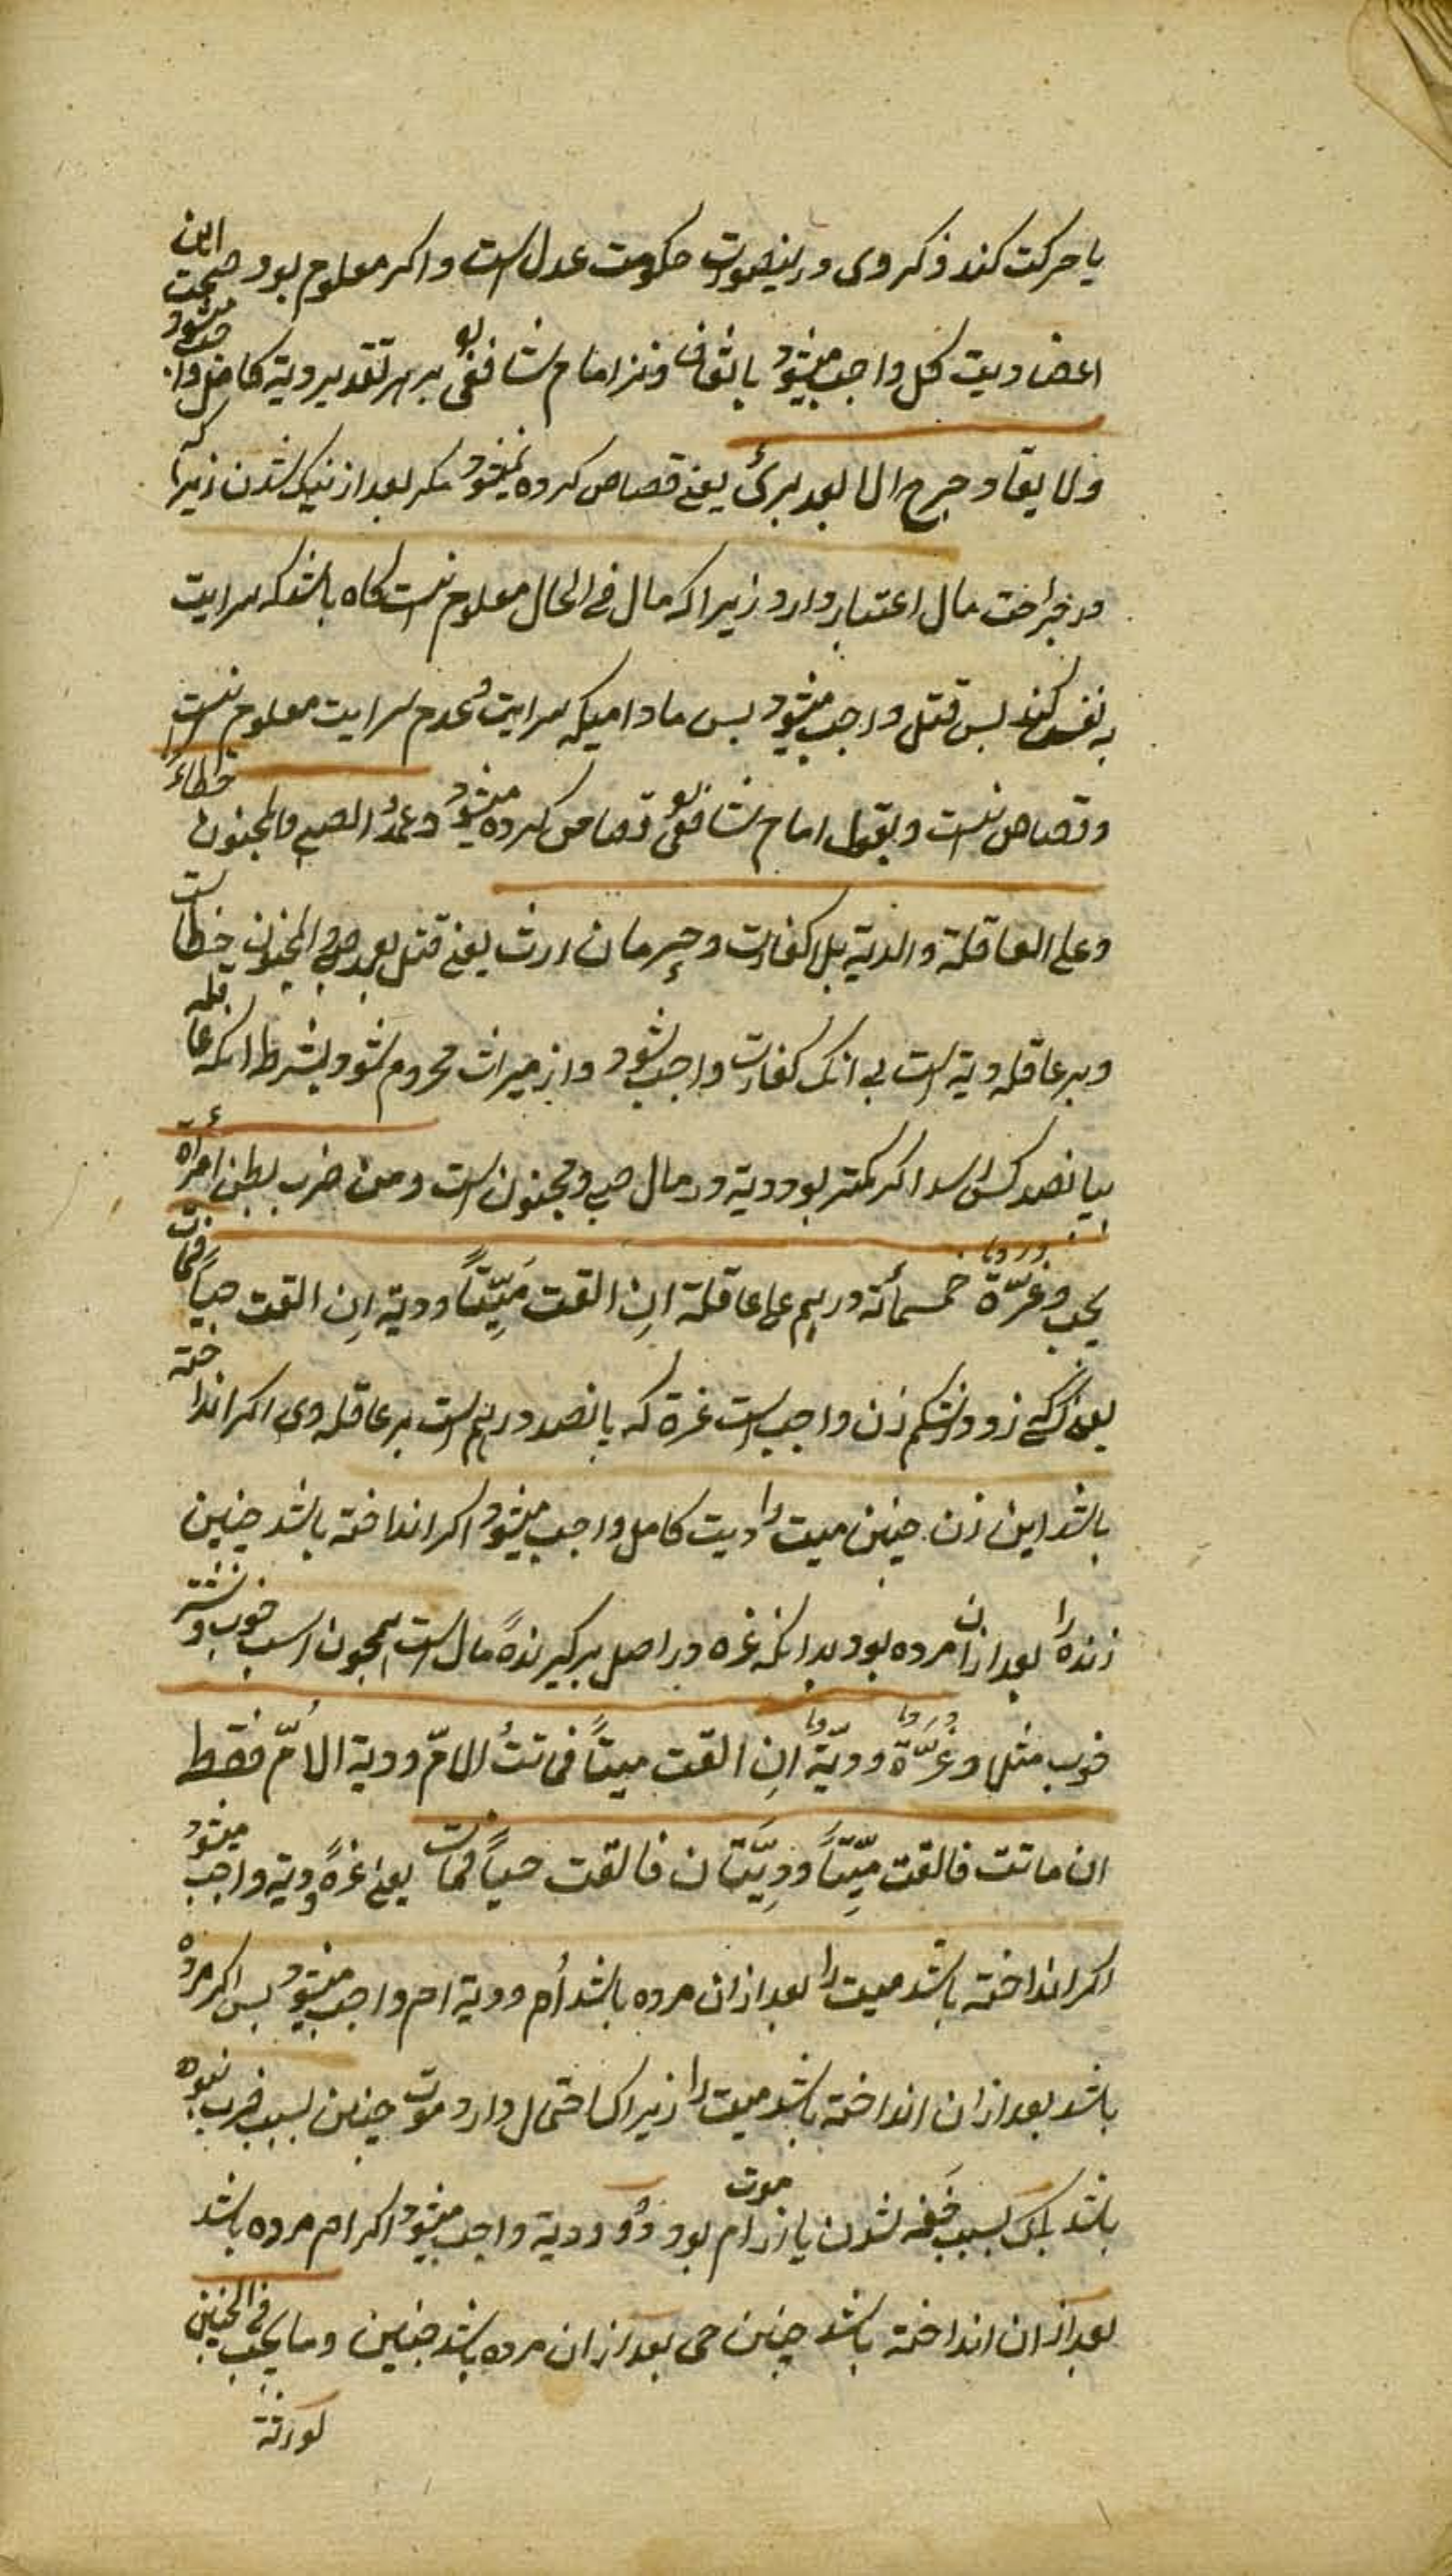 یا حرکت کند ذکر وی درینصورت حکومت عدل است و اکر معلوم بود صحت این
اعضا دیت کل واجب میشود باتفاق و نزد امام شافعی بر هر تقدیر دیة کامل واجب میشود
ولا یقاد جرح الا بعد برئ یعنی قصاص کرده نمیشود مکر بعد از نیک شدن زیرا که
در جراحت مال اعتبار دارد زیرا که مال فی الحال معلوم نیست کاه باشد که سرایت
به نفس کند پس قتل واجب میشود پس مادامیکه سرایت و عدم سرایت معلوم نیست
و قصاص نیست و بقول امام شافعی قصاص کرده میشود وعمد الصبی والمجنون خطاء
وعلی العاقلة والدیة بل اکفارت و حرمان ارث یعنی قتل بعمد صبی و المجنون خطا است
و بر عاقله دیة است بی انک کفارت واجب شود و از میراث محروم شود بشرط انکه عاقله
بیانصد کس را سد اکر کمتر بود دیة در مال صبی و مجنون است ومن ضرب بطن امرأة
یجب و غرّة خمسمأئة درهم علی عاقلة ان القت میّتاً ودیة ان القت حیاً فمات
یعنی اکر کسی زد در شکم زن واجب است غرة که بانصد درهم است بر عاقله وی اکر انداخته
باشد این زن جنین میت را دیت کامل واجب میشود اکر انداخته باشد جنین
زنده را بعد ازان مرده بود بدانکه غره در اصل برکیرندهٔ مال است همچون اسب خوب و شتر
خوب مثل و غرّة و دیّة ان القت میتاً فماتت الامّ ودیة الامّ فقط
ان ماتت فالقت میّتاً ودیّتان فالقت حیاً فمات یعنی غرهٔ و دیة واجب میشود
اکر انداخته باشد میت را بعد ازان مرده باشد أم و دیة ام واجب میشود پس اکر مرده
باشد بعد ازان انداخته باشد میت را زیرا ک احتمال دارد موت جنین بسبب ضرب نبوده
باشد بلک بسبب خفه شدن یا از موت ام بود و دو دیة واجب میشود اکر ام مرده باشد
بعد ازان انداخته باشد جنین حی بعد ازان مرده باشد جنین وما یجب فی الجنین
لورثة